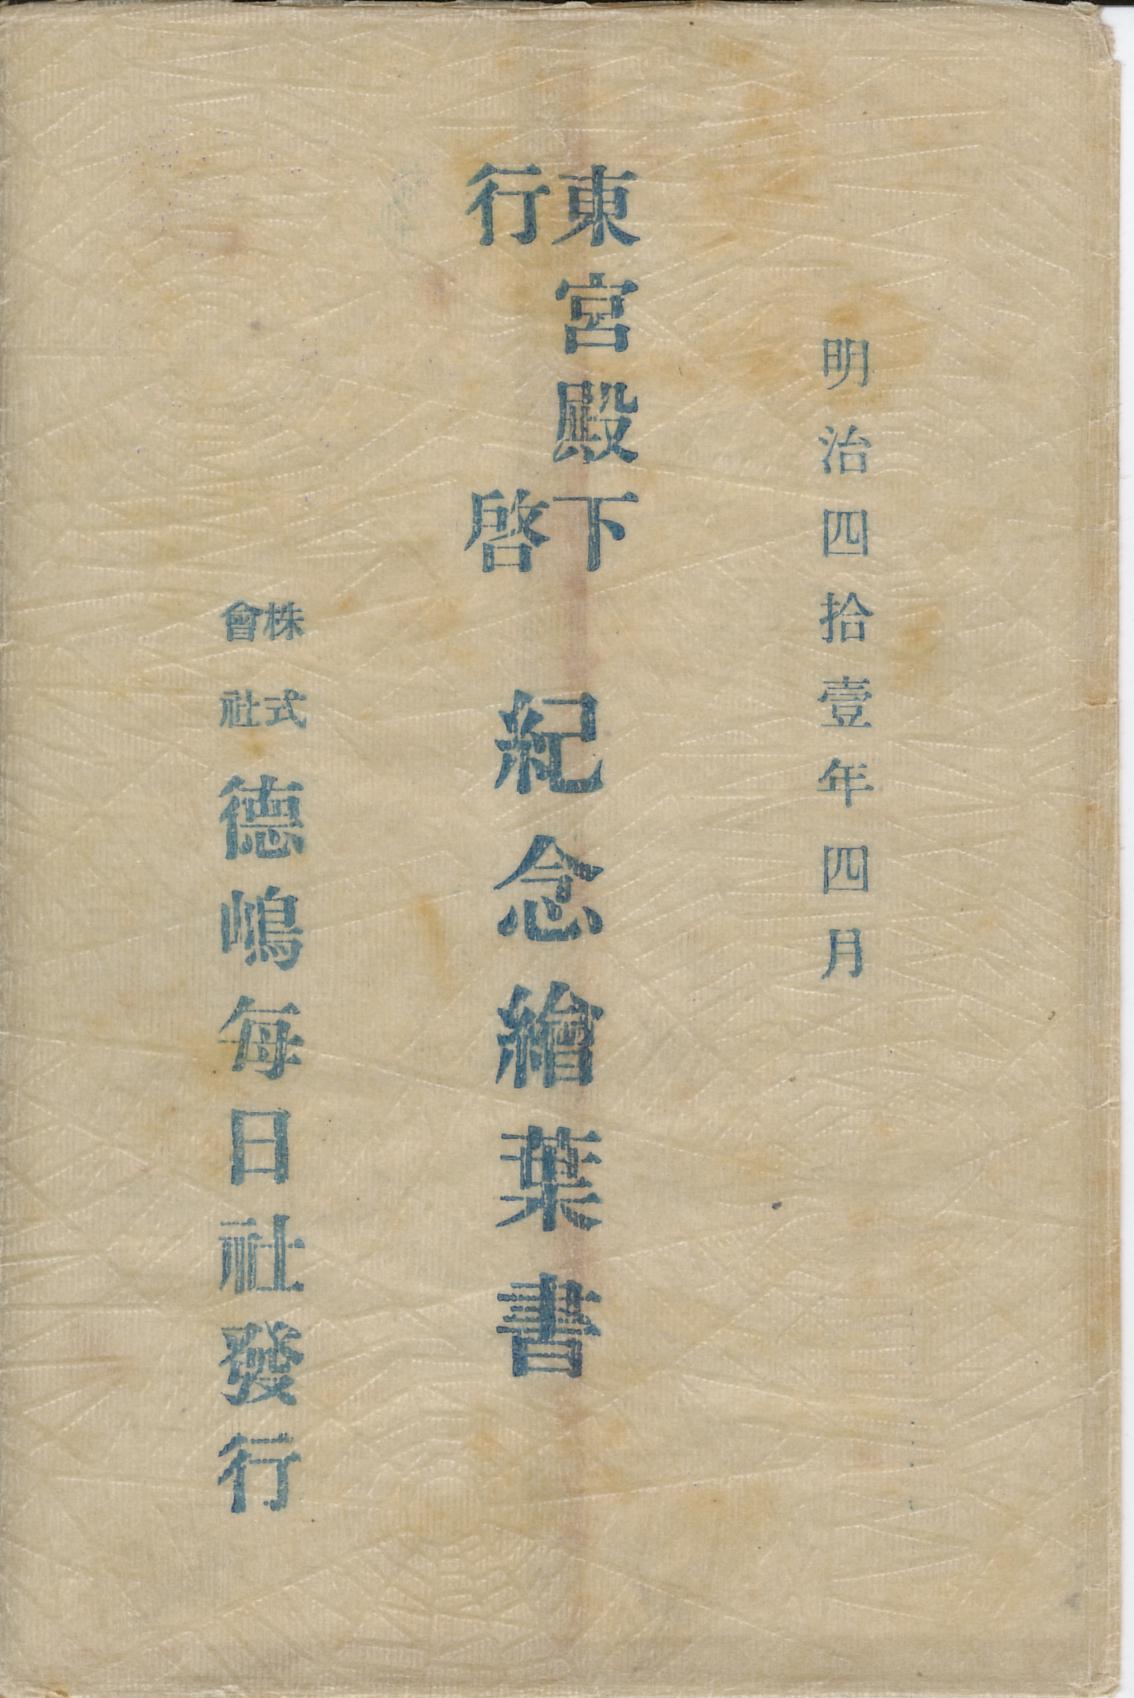 明治四拾壹年四月
東宮殿下
行啓
紀念繪葉書
株式
會社
德嶋每日社發行